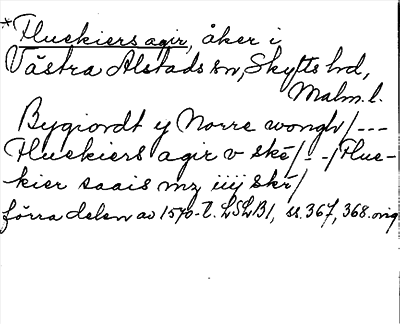 *Fluekiers agir, åker i
Västra Alstads sn, Skytts hd,
Malm. l.
Bygiordt ij Norre wongh/---
Fluekiers agir v skē/--/Flue-
kier saais mz iiij skr/
förra delen av 1570-t. LSLB1, ss. 367, 368. orig